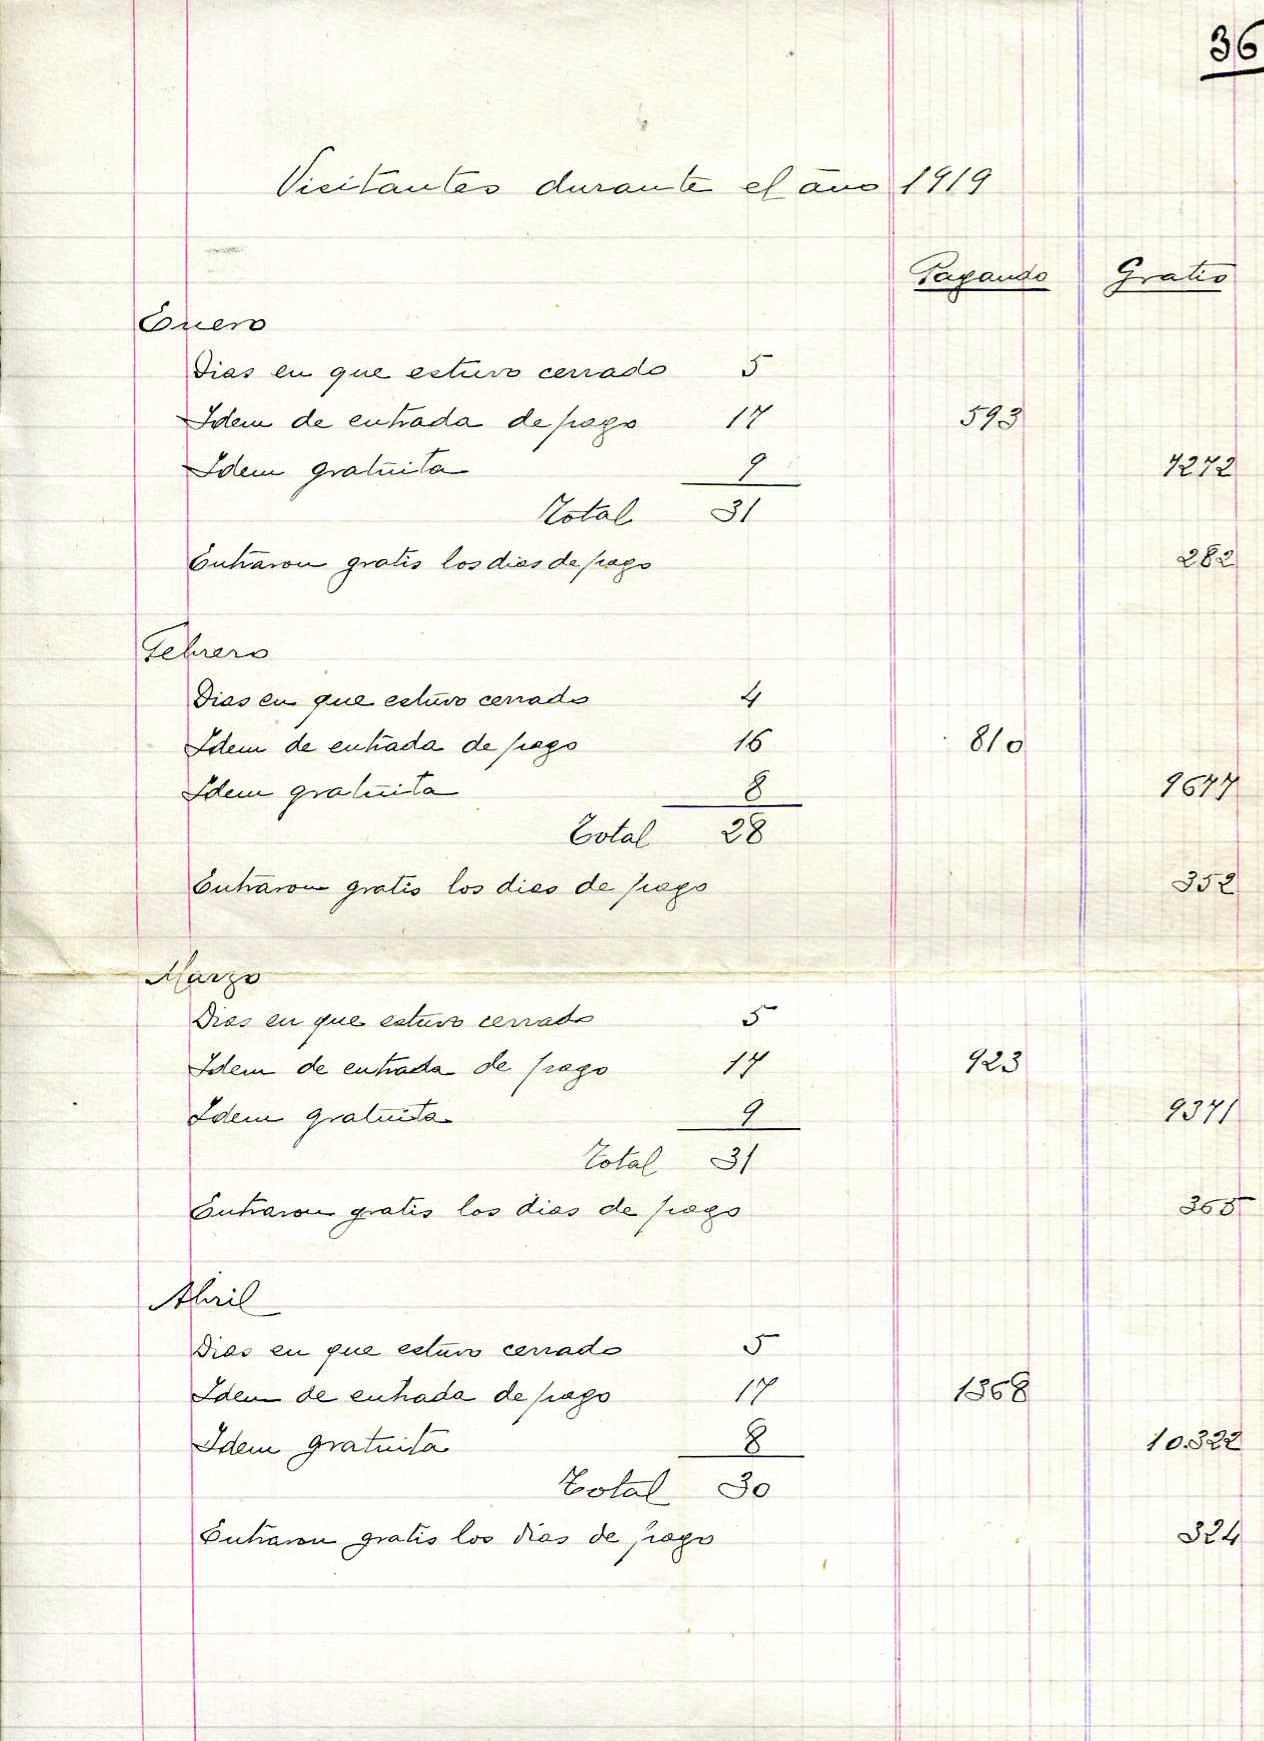 36
Visitantes durante el año 1919
Pagando Gratis
Enero
Dias en que estuvo cerrado 5
Idem de entrada de pago 17 593
Idem gratuita 9 7272
Total 31
Entraron gratis los dias de pago 282
Febrero
Dias en que estuvo cerrado 4
Idem de entrada de pago 16 810
Idem gratuita 8 9677
Total 28
Entraron gratis los dias de pago 352
Marzo
Dias en que estuvo cerrado 5
Idem de entrada de pago 17 923
Idem gratuita 9 9371
Total 31
Entraron gratis los dias de pago 365
Abril
Dias en que estuvo cerrado 5
Idem de entrada de pago 17 1368
Idem gratuita 8 10.322
Total 30
Entraron gratis los dias de pago 324